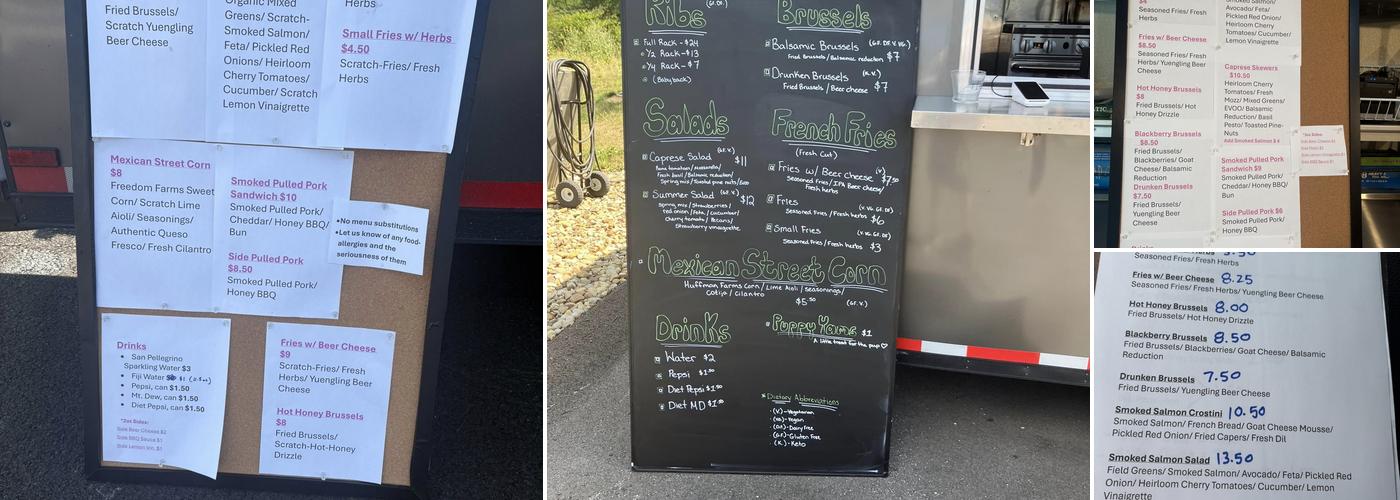 Fried Brussels/
Scratch Yuengling
Beer Cheese
Organic Mixed
Greens/ Scratch-
Smoked Salmon/
Feta/ Pickled Red
Onions/ Heirloom
Cherry Tomatoes/
Cucumber/ Scratch
Lemon Vinaigrette
Herbs
Small Fries w/ Herbs
$4.50
Scratch-Fries/ Fresh
Herbs
Mexican Street Corn
$8
Freedom Farms Sweet
Corn/ Scratch Lime
Aioli/ Seasonings/
Authentic Queso
Fresco/ Fresh Cilantro
Smoked Pulled Pork
Sandwich $10
Smoked Pulled Pork/
Cheddar/ Honey BBQ/
Bun
Side Pulled Pork
$8.50
Smoked Pulled Pork/
Honey BBQ
•No menu substitutions
•Let us know of any food-
allergies and the
seriousness of them
Drinks
• San Pellegrino
Sparkling Water $3
• Fiji Water
• Pepsi, can $1.50
• Mt. Dew, can $1.50
• Diet Pepsi, can $1.50
*2oz Sides:
Side Beer Cheese $2
Side BBQ Sauce $1
Side Lemon Vin. $1
Fries w/ Beer Cheese
$9
Scratch-Fries/ Fresh
Herbs/ Yuengling Beer
Cheese
Hot Honey Brussels
$8
Fried Brussels/
Scratch-Hot-Honey
Drizzle
Ribs (G.F. DF.)
Full Rack - $24
1/2 Rack - $13
1/4 Rack - $7
(Baby back)
Brussels
Balsamic Brussels (G.F. DF. V. VG.)
Fried Brussels/Balsamic reduction $7
Drunken Brussels (K.V.)
Fried Brussels/Beer cheese $7
Salads
Caprese Salad (GF. V.) $11
Fresh basil/Balsamic reduction/
Spring mix/Toasted pine nuts/Evoo
Summer Salad (GF. V.) $12
Spring mix/Strawberries/
red onion/Feta/cucumber/
Cherry tomato/Pecans/
Strawberry vinaigrette
French Fries
(Fresh Cut)
Fries w/ Beer cheese (V.) $7.50
Seasoned Fries/IPA Beer cheese/
Fresh herbs
Fries (V. VG. GF. DF)
Seasoned Fries/Fresh herbs $6
Small Fries (V. VG. GF. DF)
Seasoned Fries/Fresh herbs $3
Mexican Street Corn
Huffman Farms Corn/Lime Aioli/Seasonings/
Cotija/Cilantro
$5.50 (GF. V.)
Drinks
Water $2
Pepsi $1.50
Diet Pepsi $1.50
Diet MD $1.50
Puppy Yums $1
A little treat for the pup♡
*Dietary Abbreviations
(V.)-Vegetarian
(VG)-Vegan
(D.F.)-Dairy Free
(G.F.)-Gluten Free
(K.)-Keto
$4
Seasoned Fries/ Fresh
Herbs
Fries w/ Beer Cheese
$8.50
Seasoned Fries/ Fresh
Herbs/ Yuengling Beer
Cheese
Hot Honey Brussels
$8
Fried Brussels/ Hot
Honey Drizzle
Blackberry Brussels
$8.50
Fried Brussels/
Blackberries/ Goat
Cheese/ Balsamic
Reduction
Drunken Brussels
$7.50
Fried Brussels/
Yuengling Beer
Cheese
Smoked Salmon/
Avocado/ Feta/
Pickled Red Onion/
Heirloom Cherry
Tomatoes/ Cucumber/
Lemon Vinaigrette
Caprese Skewers
$10.50
Heirloom Cherry
Tomatoes/ Fresh
Mozz/ Mixed Greens/
EVOO/ Balsamic
Reduction/ Basil
Pesto/ Toasted Pine-
Nuts
Add Smoked Salmon $4
Smoked Pulled Pork
Sandwich $9
Smoked Pulled Pork/
Cheddar/ Honey BBQ/
Bun
Side Pulled Pork $6
Smoked Pulled Pork/
Honey BBQ
*2oz Sides:
Seasoned Fries/ Fresh Herbs
Fries w/ Beer Cheese 8.25
Seasoned Fries/ Fresh Herbs/ Yuengling Beer Cheese
Hot Honey Brussels 8.00
Fried Brussels/ Hot Honey Drizzle
Blackberry Brussels 8.50
Fried Brussels/ Blackberries/ Goat Cheese/ Balsamic
Reduction
Drunken Brussels 7.50
Fried Brussels/ Yuengling Beer Cheese
Smoked Salmon Crostini 10.50
Smoked Salmon/ French Bread/ Goat Cheese Mousse/
Pickled Red Onion/ Fried Capers/ Fresh Dil
Smoked Salmon Salad 13.50
Field Greens/ Smoked Salmon/ Avocado/ Feta/ Pickled Red
Onion/ Heirloom Cherry Tomatoes/ Cucumber/ Lemon
Vinaigrette